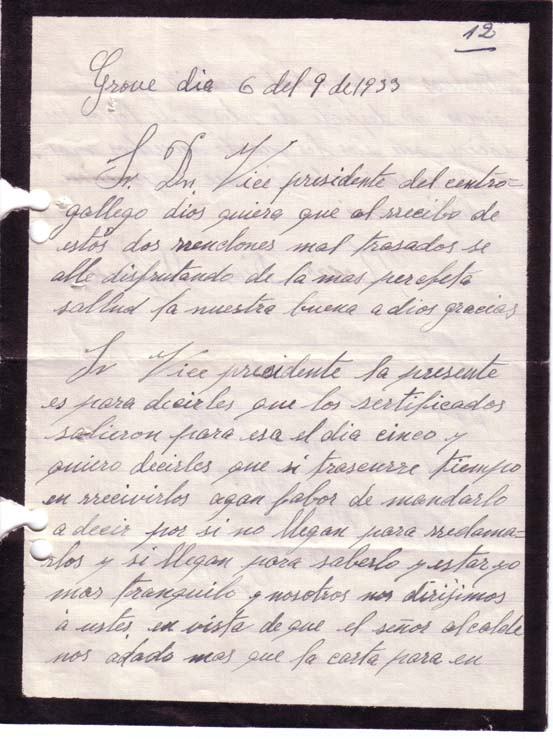 12
Grove dia 6 del 9 de 1933
Sr. Dn. Vice presidente del centro-
gallego dios quiera que al rrecibo de
estos dos rrenclones mal trasados se
alle disfrutando de la mas perfeta
sallud la nuestra buena a dios gracias
Sr Vice precidente la presente
es para dicirles que los sertificados
salieron para esa el dia cinco y
quiero decirlos que si trascurre tiempo
en rrecivirlos agan fabor de mandarlo
a decir por si no llegan para rreclama-
rlos y si llegan para saberlo y estar yo
mas tranquilo y nosotros nos dirijimos
a ustes en vista de que el señor alcalde
nos adado mas que la carta para en